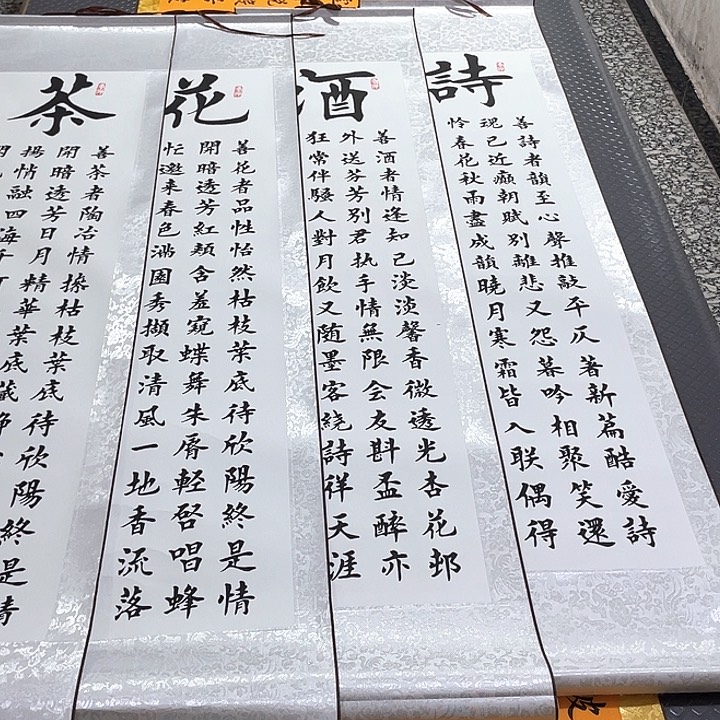 詩
善詩者韻至心聲推敲平仄著新篇酷愛詩
瑰已近癲朝賦别離悲又怨暮吟相聚笑還
怜春花秋雨盡成韻曉月寒霜皆入联偶得
酒
善酒者情逢知己淡淡馨香微透光杏花邨
外送芬芳别君执手情無限会友斟盃醉亦
狂常伴騷人對月飲又随墨客繞詩祥天涯
花
善花者品性怡然枯枝葉底待欣陽終是情
開暗透芳紅頬含羞窺蝶舞朱唇輕啓唱蜂
忙邀来春色滿園秀擷取清風一地香流落
茶
善茶者陶冶情操枯枝葉底待欣陽終是情
開暗透芳日月精華葉底藏
揚悄融四海